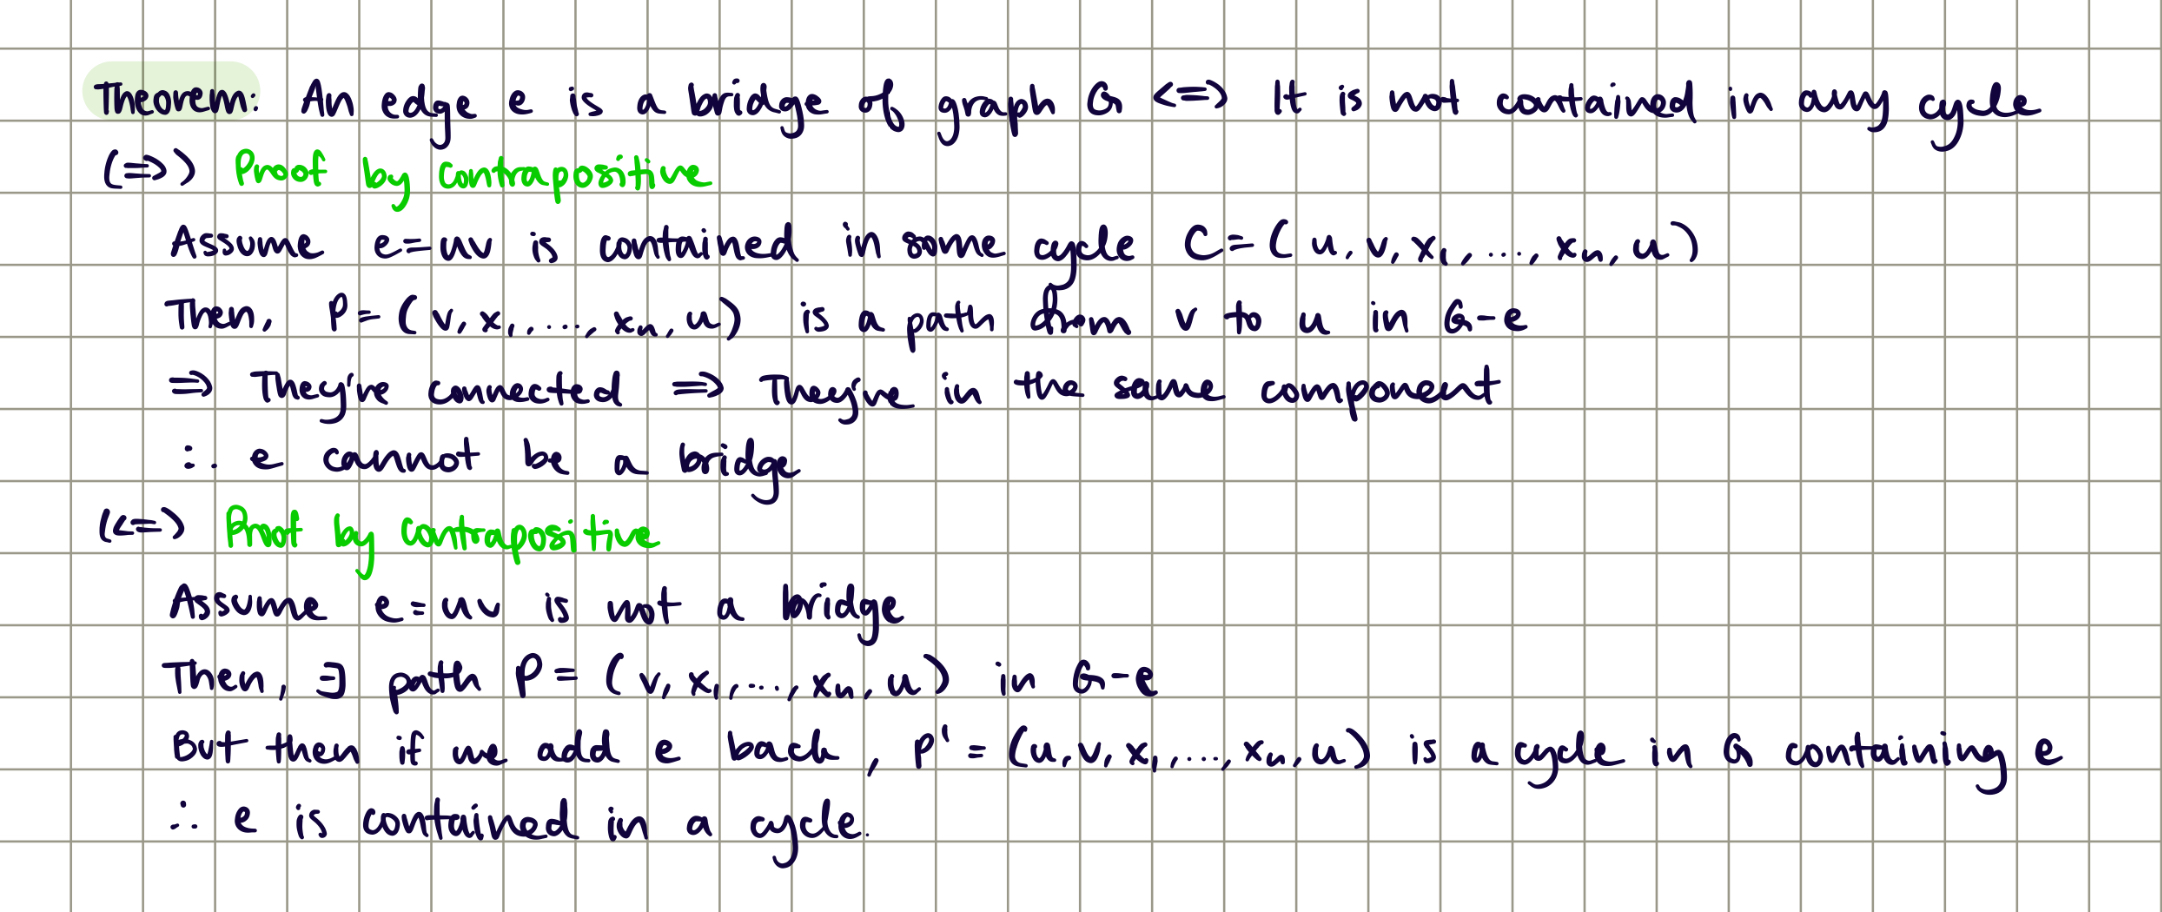 Theorem: An edge e is a bridge of graph G <=> It is not contained in any cycle
(=>) Proof by contrapositive
Assume e=uv is contained in some cycle C=(u,v,x₁,...,xₙ,u)
Then, P=(v,x₁,...,xₙ,u) is a path from v to u in G-e
=> They're connected => They're in the same component
∴ e cannot be a bridge
(<=) Proof by contrapositive
Assume e=uv is not a bridge
Then, ∃ path P=(v,x₁,...,xₙ,u) in G-e
But then if we add e back, P'=(u,v,x₁,...,xₙ,u) is a cycle in G containing e
∴ e is contained in a cycle.